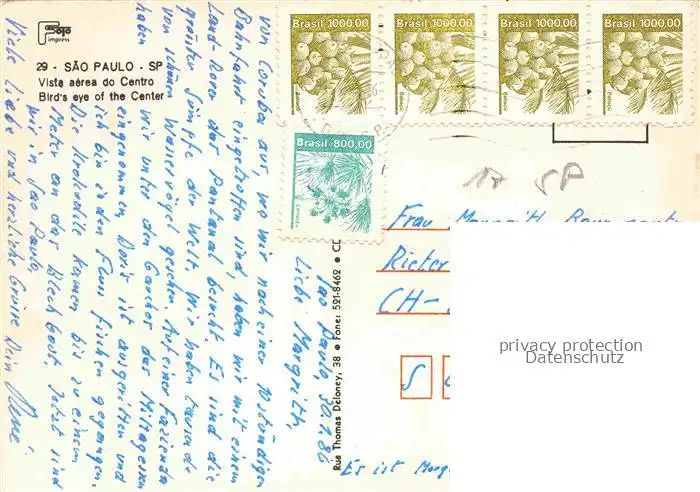 29 - SÃO PAULO - SP
Vista aérea do Centro
Bird's eye of the Center
impress
Brasil 1000,00
Brasil 1000,00
Brasil 1000,00
Brasil 1000,00
Babaçu
Babaçu
Babaçu
Babaçu
Brasil 800,00
Carnaúba
17 SP
Frau
Rieter
CH-
S
privacy protection
Datenschutz
Rua Thomas Deloney, 38 • Fone: 521-8462 •
Sao Paulo, 30.1.86
Liebe Margrith,
von Coruba aus, wo wir nach einer stündigen
Bahnfahrt eingetroffen sind, haben wir mit einem
Land-Rover den Pantanal besucht. Es sind die
grössten Sümpfe der Welt. Wir haben tausende
von schönen Wasservögel gesehen. Auf einer Fazienda
haben wir unter den Gauchos das Mittagessen
eingenommen, Doris ist ausgeritten und
ich bin in den Fluss fischen gegangen.
Die Krokodile kamen bis zu einem
Meter an das Blechboot. Jetzt sind
wir in Sao Paulo.
Viele liebe und herzliche Grüsse Dein
Es ist